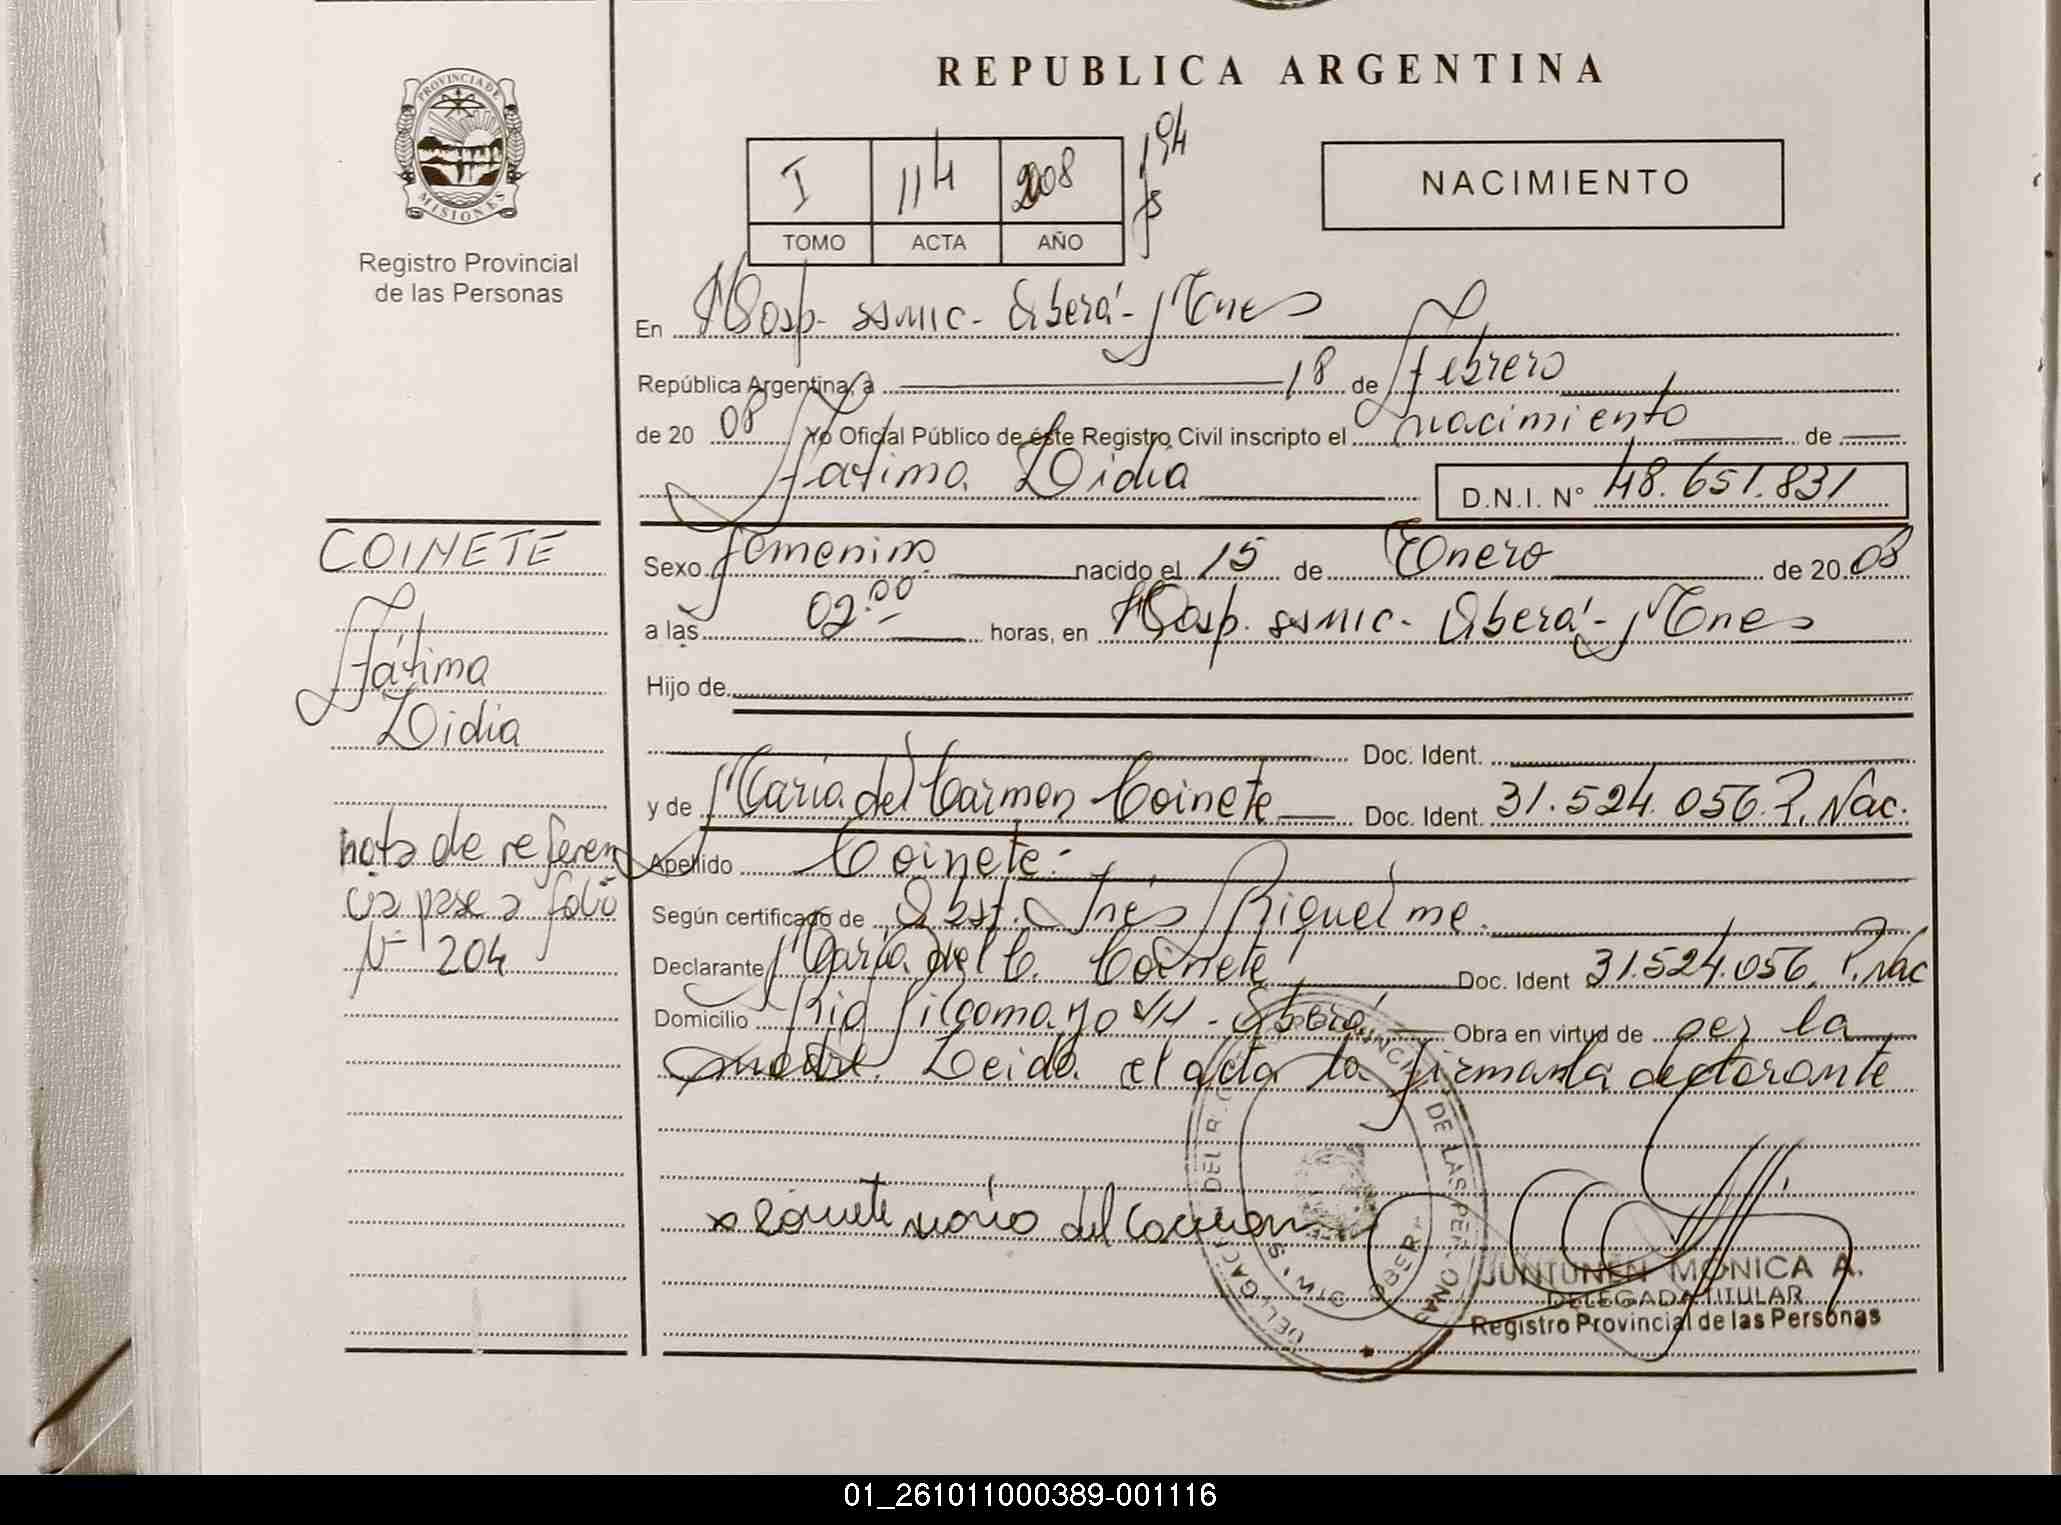 PROVINCIA DE
MISIONES
Registro Provincial
de las Personas
REPUBLICA ARGENTINA
I 114 2008 fs 194
TOMO ACTA AÑO
NACIMIENTO
En Hosp. SAMIC - Oberá - Mnes
República Argentina, a 18 de Febrero
de 2008 Yo Oficial Público de éste Registro Civil inscripto el nacimiento de
Fátima Lidia D.N.I. N° 48.651.831
COINETE
Fátima
Lidia
nota de referen
cia pase a folio
N° 204
Sexo femenino nacido el 15 de Enero de 2008
a las 02:00 horas, en Hosp. SAMIC - Oberá - Mnes
Hijo de
Doc. Ident.
y de María del Carmen Coinete Doc. Ident. 31.524.056 P. Nac.
Apellido Coinete:
Según certificado de Obst. Inés Riquelme.
Declarante María del C. Coinete Doc. Ident 31.524.056 P. Nac
Domicilio Río Pilcomayo S/N - Oberá Obra en virtud de ser la
madre. Leida el acta la firma la declarante
x Coinete María del Carmen
DE LAS PERSONAS
JUNTUNEN MONICA A.
DELEGADA TITULAR
Registro Provincial de las Personas
01_261011000389-001116